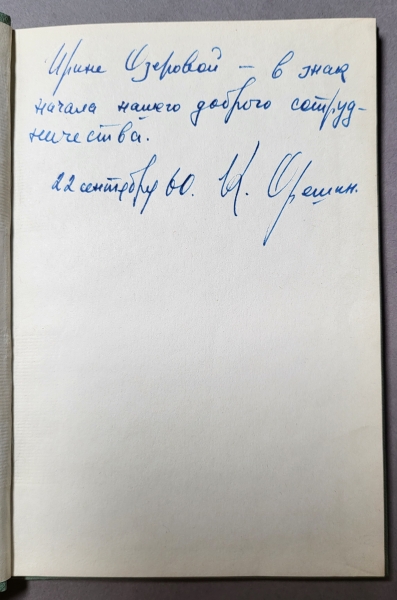 Ирине Озеровой – в знак
начала нашего доброго сотруд-
ничества.
22 сентября 60. К. Орешин.